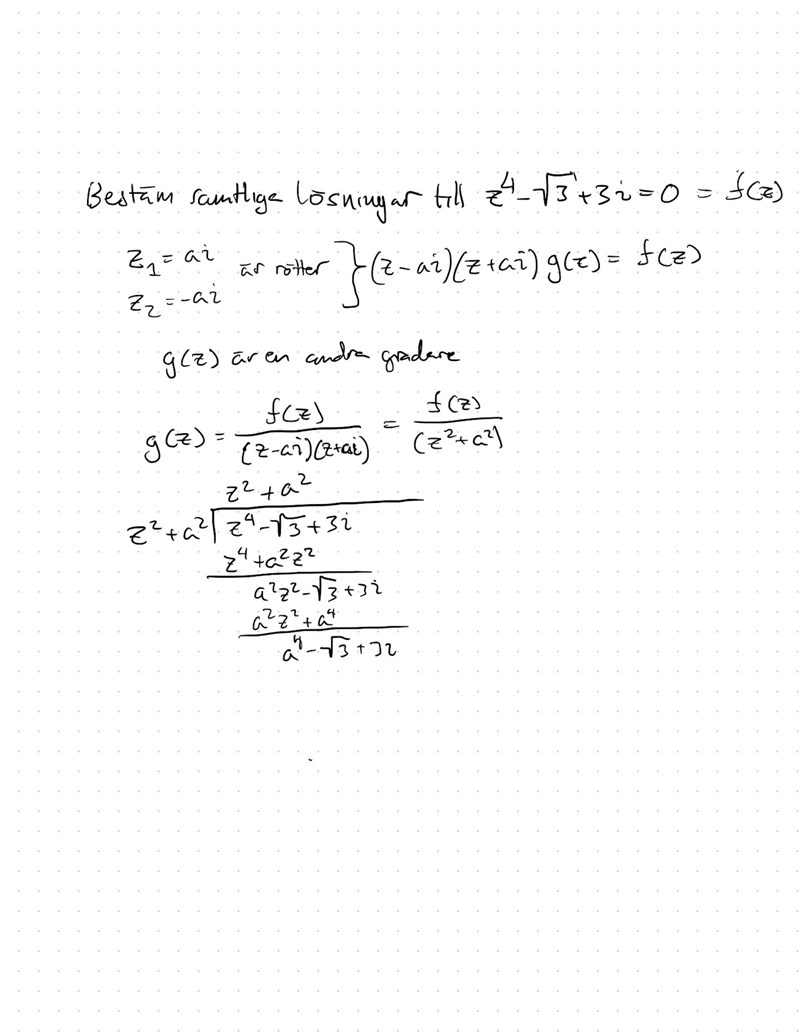 Bestäm samtliga lösningar till z⁴-√3+3i=0 = f(z)
z₁=ai är rötter } (z-ai)(z+ai) g(z) = f(z)
z₂=-ai
g(z) är en andra gradare
g(z) = f(z)/((z-ai)(z+ai)) = f(z)/(z²+a²)
z²+a²
z²+a² z⁴-√3+3i
z⁴+a²z²
a²z²-√3+3i
a²z²+a⁴
a⁴-√3+3i